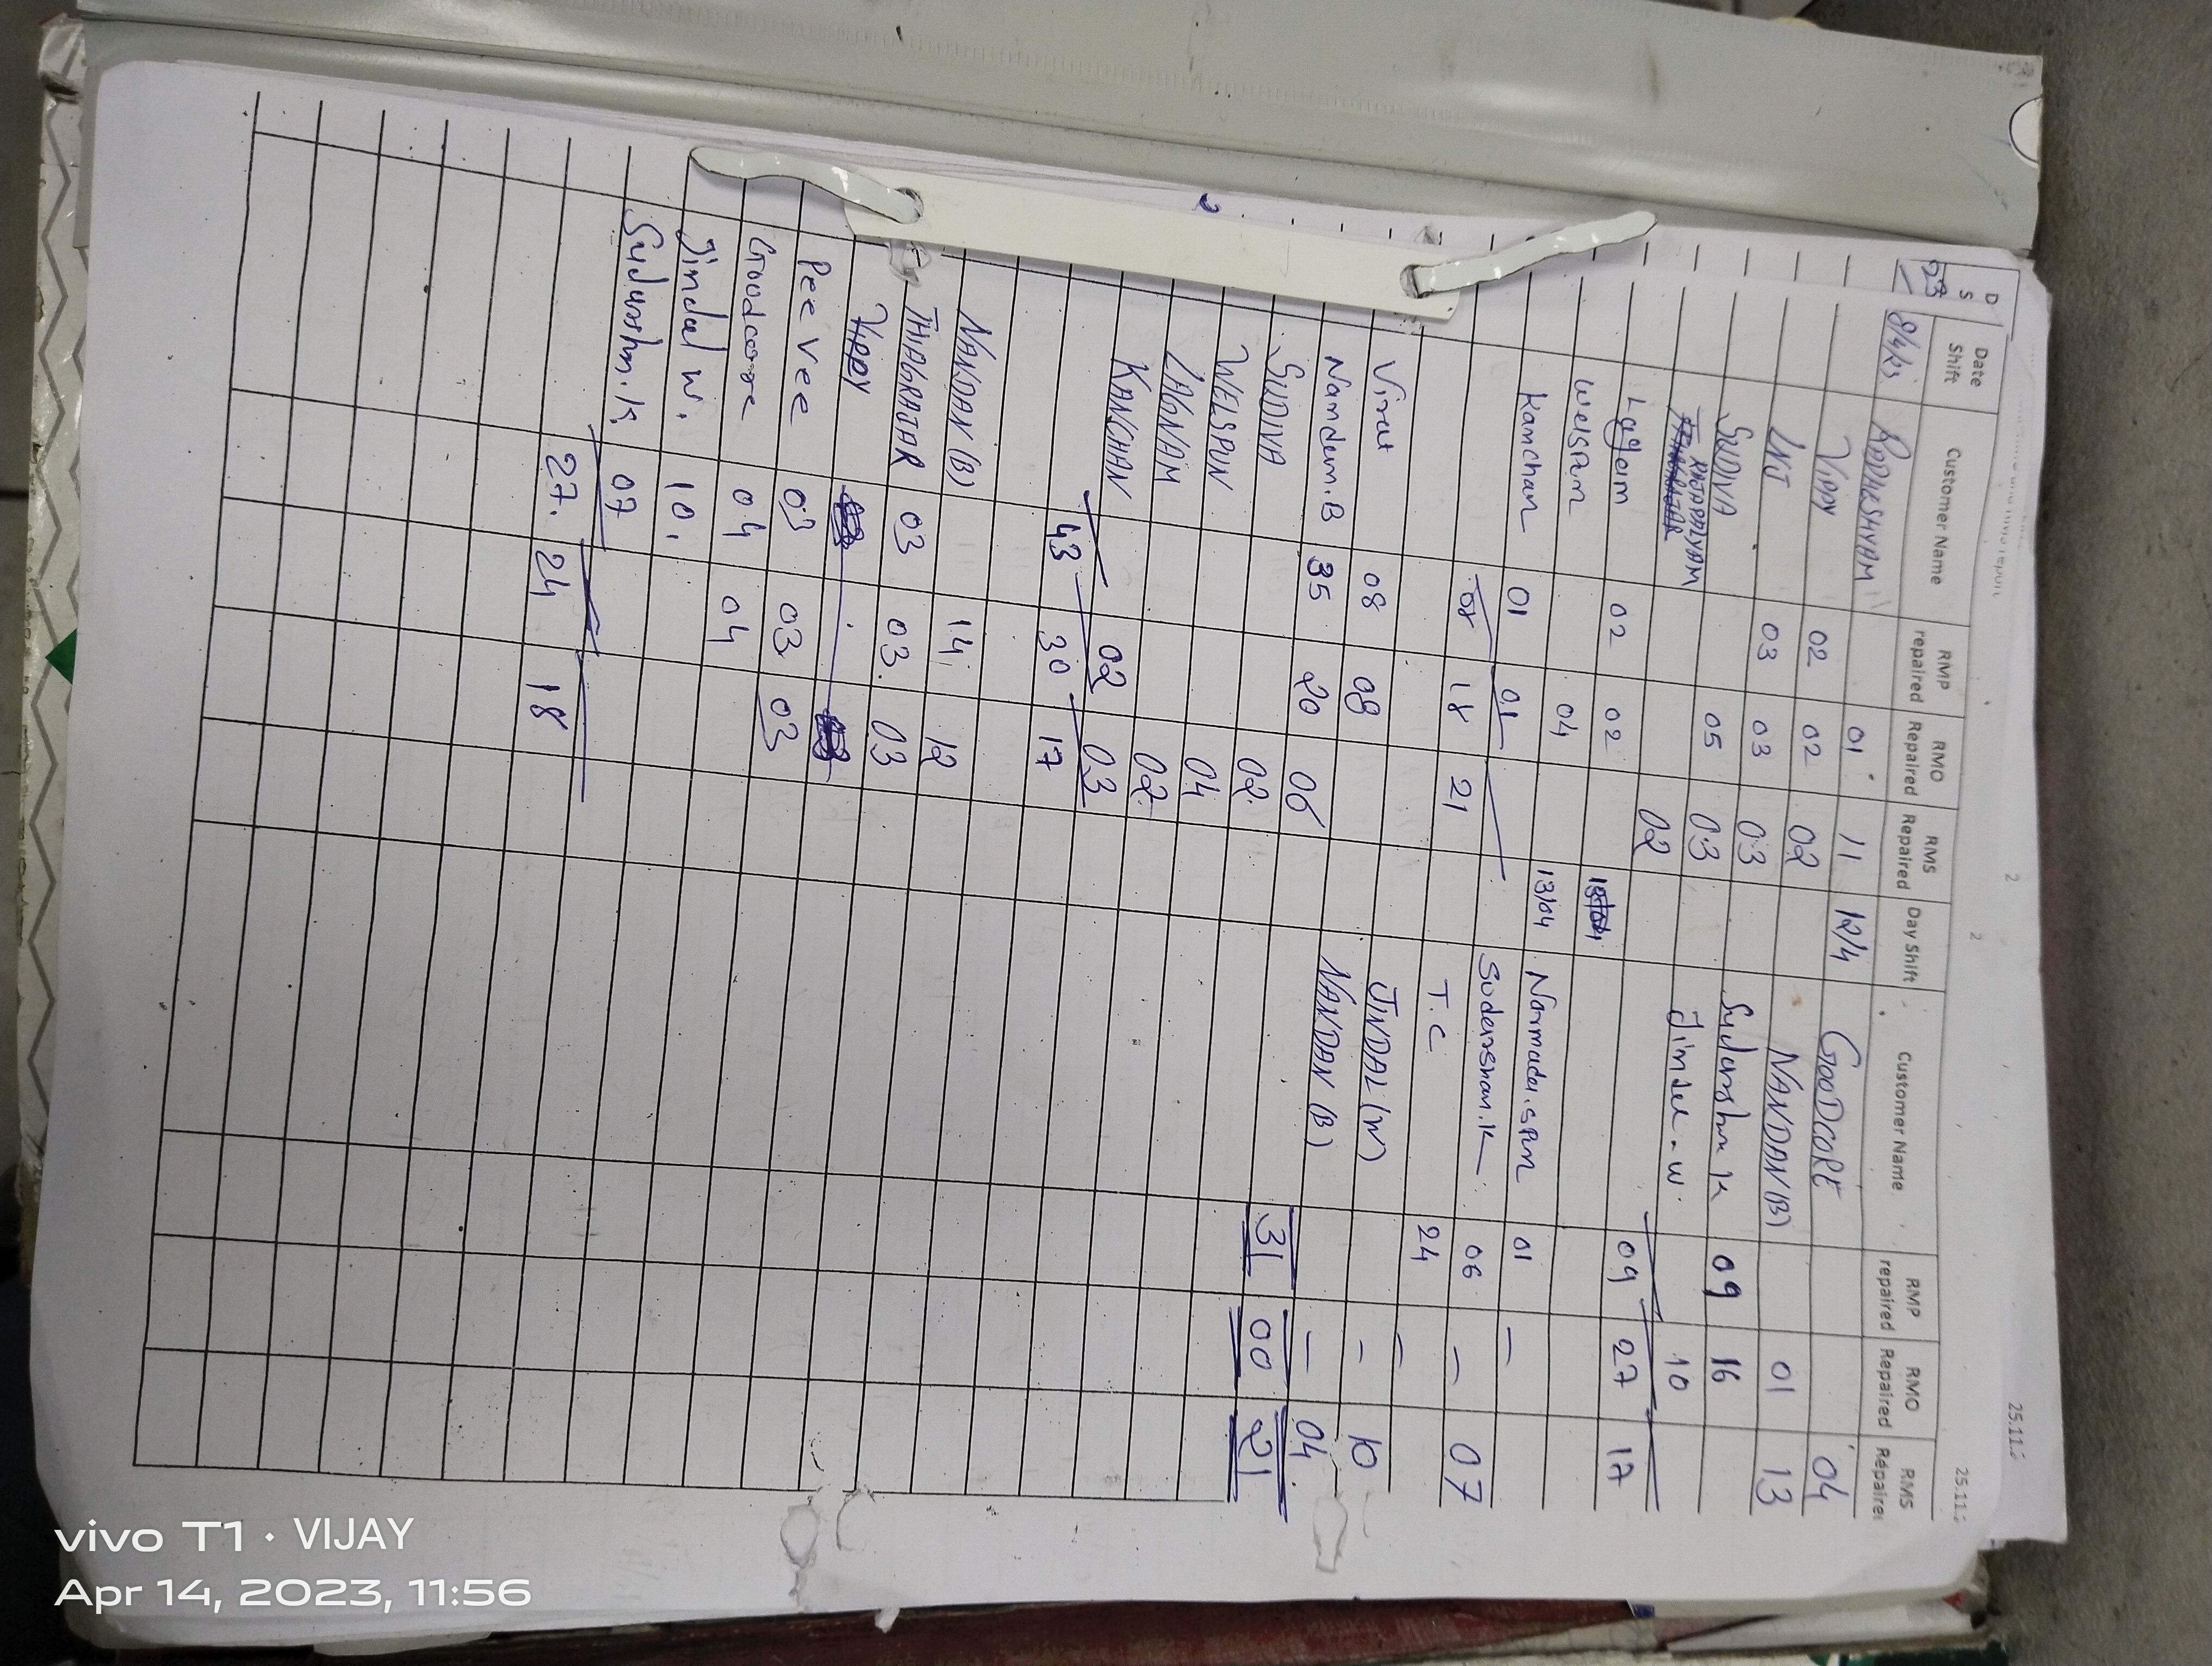 25.11.
25.11.
2
2
D
S
Date
Shift
Customer Name
RMP
repaired
RMO
Repaired
RMS
Repaired
Day Shift
Customer Name
RMP
repaired
RMO
Repaired
RMS
Repaire
8/4/23 RADHESHYAM 01 11 12/4 GOODCORE 04
VIPPY 02 02 02 NANDAN (B) 01 13
LNJ 03 03 03 Sudarshn K 09 16
SUDIVA 05 03 Jindal - W. 10
RAJAPALYAM 02
Lagnam 02 02 09 27 17
Welspun 04
Kanchan 01 01 13/04 Narmada.spun 01 —
08 18 21 Sudarshan.K 06 — 07
T.C 24 —
Virat 08 08 JINDAL (W) — 10
Nandan.B 35 20 NANDAN (B) — 04
SUDIVA 06 31 00 21
WELSPUN 02
LAGNAM 04
KANCHAN 02
02 03
43 30 17
NANDAN (B) 14 12
THIAGRAJAR 03 03 03
VIPPY
Pee Vee 03 03 03
Goodcore 04 04
Jindal W. 10
Sudarshn.K 07
27 24 18
vivo T1 · VIJAY
Apr 14, 2023, 11:56